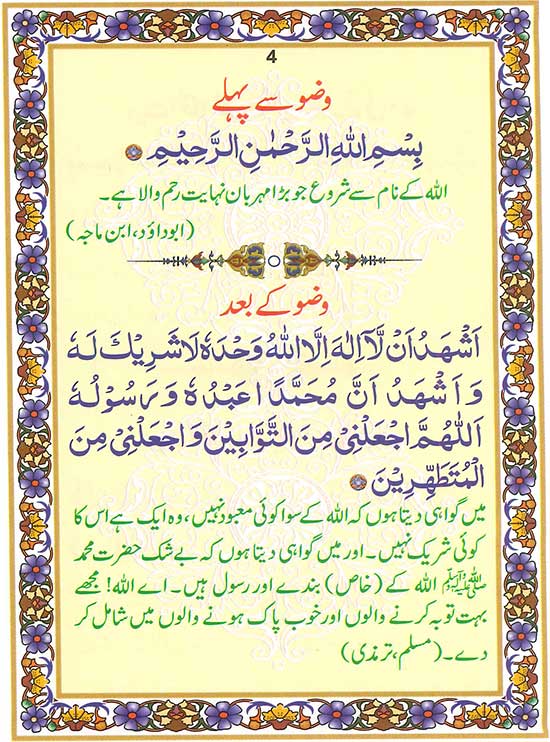 4
وضو سے پہلے
بِسْمِ اللهِ الرَّحْمٰنِ الرَّحِيْمِ
اللہ کے نام سے شروع جو بڑا مہربان نہایت رحم والا ہے۔
(ابوداؤد، ابن ماجہ)
وضو کے بعد
اَشْهَدُ اَنْ لَّآ اِلٰهَ اِلَّا اللهُ وَحْدَهٗ لَا شَرِيْكَ لَهٗ
وَ اَشْهَدُ اَنَّ مُحَمَّدًا عَبْدُهٗ وَ رَسُوْلُهٗ
اَللّٰهُمَّ اجْعَلْنِيْ مِنَ التَّوَّابِيْنَ وَ اجْعَلْنِيْ مِنَ
الْمُتَطَهِّرِيْنَ
میں گواہی دیتا ہوں کہ اللہ کے سوا کوئی معبود نہیں، وہ ایک ہے اس کا
کوئی شریک نہیں۔ اور میں گواہی دیتا ہوں کہ بے شک حضرت محمد
ﷺ اللہ کے (خاص) بندے اور رسول ہیں۔ اے اللہ! مجھے
بہت توبہ کرنے والوں اور خوب پاک ہونے والوں میں شامل کر
دے۔ (مسلم، ترمذی)